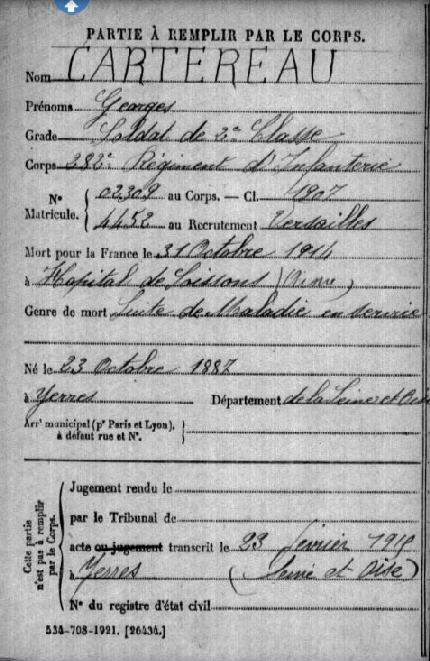 PARTIE À REMPLIR PAR LE CORPS.
Nom CARTEREAU
Prénoms Georges
Grade Soldat de 2e Classe
Corps 282e Régiment d'Infanterie
N° Matricule. { 02309 au Corps. — Cl. 1907
4452 au Recrutement Versailles
Mort pour la France le 31 Octobre 1914
à Hopital de Soissons (Aisne)
Genre de mort Suite de Maladie en service
Né le 23 Octobre 1887
à Yerres Département de la Seine et Oise
Arrt municipal (pr Paris et Lyon), à défaut rue et N°.
Cette partie n'est pas à remplir par le Corps.
Jugement rendu le
par le Tribunal de
acte ou jugement transcrit le 23 février 1915
à Yerres (Seine et Oise)
N° du registre d'état civil
534-708-1921. [26434.]